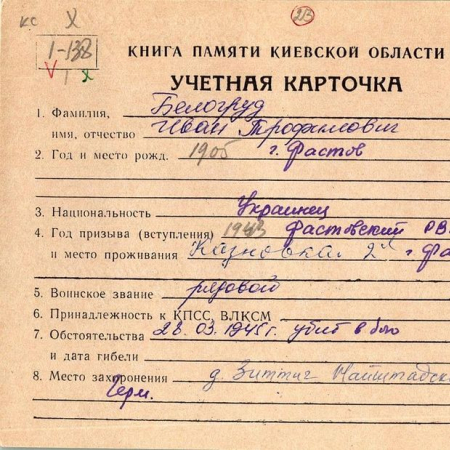 КС X
213
I-138
V X
КНИГА ПАМЯТИ КИЕВСКОЙ ОБЛАСТИ
УЧЕТНАЯ КАРТОЧКА
1. Фамилия, Белогруд
имя, отчество Иван Трофимович
2. Год и место рожд. 1905 г. Фастов
3. Национальность Украинец
4. Год призыва (вступления) 1943 Фастовский РВ
и место проживания Казновка 2 г Фа
5. Воинское звание рядовой
6. Принадлежность к КПСС, ВЛКСМ
7. Обстоятельства 28.03.1945г. убит в бою
и дата гибели
8. Место захоронения д. Зиттиг Найштадск
Герм.